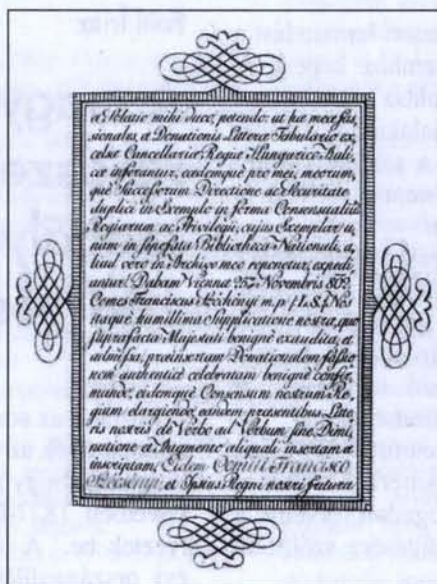 a Oblatio mihi duco, petendo: ut hæ meæ fas,
sionales, a Donationis Litteræ Tabulario ex,
celsæ Cancellariæ Regiæ Hungaricæ Auli,
cæ inferantur, eædemque pro mei, meorum,
que Successorum Directione ac Securitate
duplici in Exemplo in forma Consensualiũ
Regiarum ac Privilegii, cujus Exemplar u,
num in sæpefata Bibliotheca Nationali, a,
liud vero in Archivo meo reponetur, expedi,
antur. Datum Viennæ 25a Novembris 802.
Comes Franciscus Széchényi m. p. (L. S.) Nos
itaque humillima Supplicatione nostra, quo
supra facta Majestati benigne exaudita, et
admissa, præinsertam Donationalem fassio
nem authentice celebratam benigne confir
mando, eidemque Consensum nostrum Re,
gium elargiendo, eandem præsentibus Litte
ris nostris de Verbo ad Verbum sine Dimi,
nutione et Augmento aliquali insertam et
inscriptam, Eidem Comiti Francisco
Széchényi et Ipsius Regni nostri futura